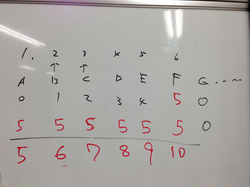 1. 2 3 4 5 6
↑ ↑
A B C D E F G ....
0 1 2 3 4 5 0
5 5 5 5 5 5 0
5 6 7 8 9 10